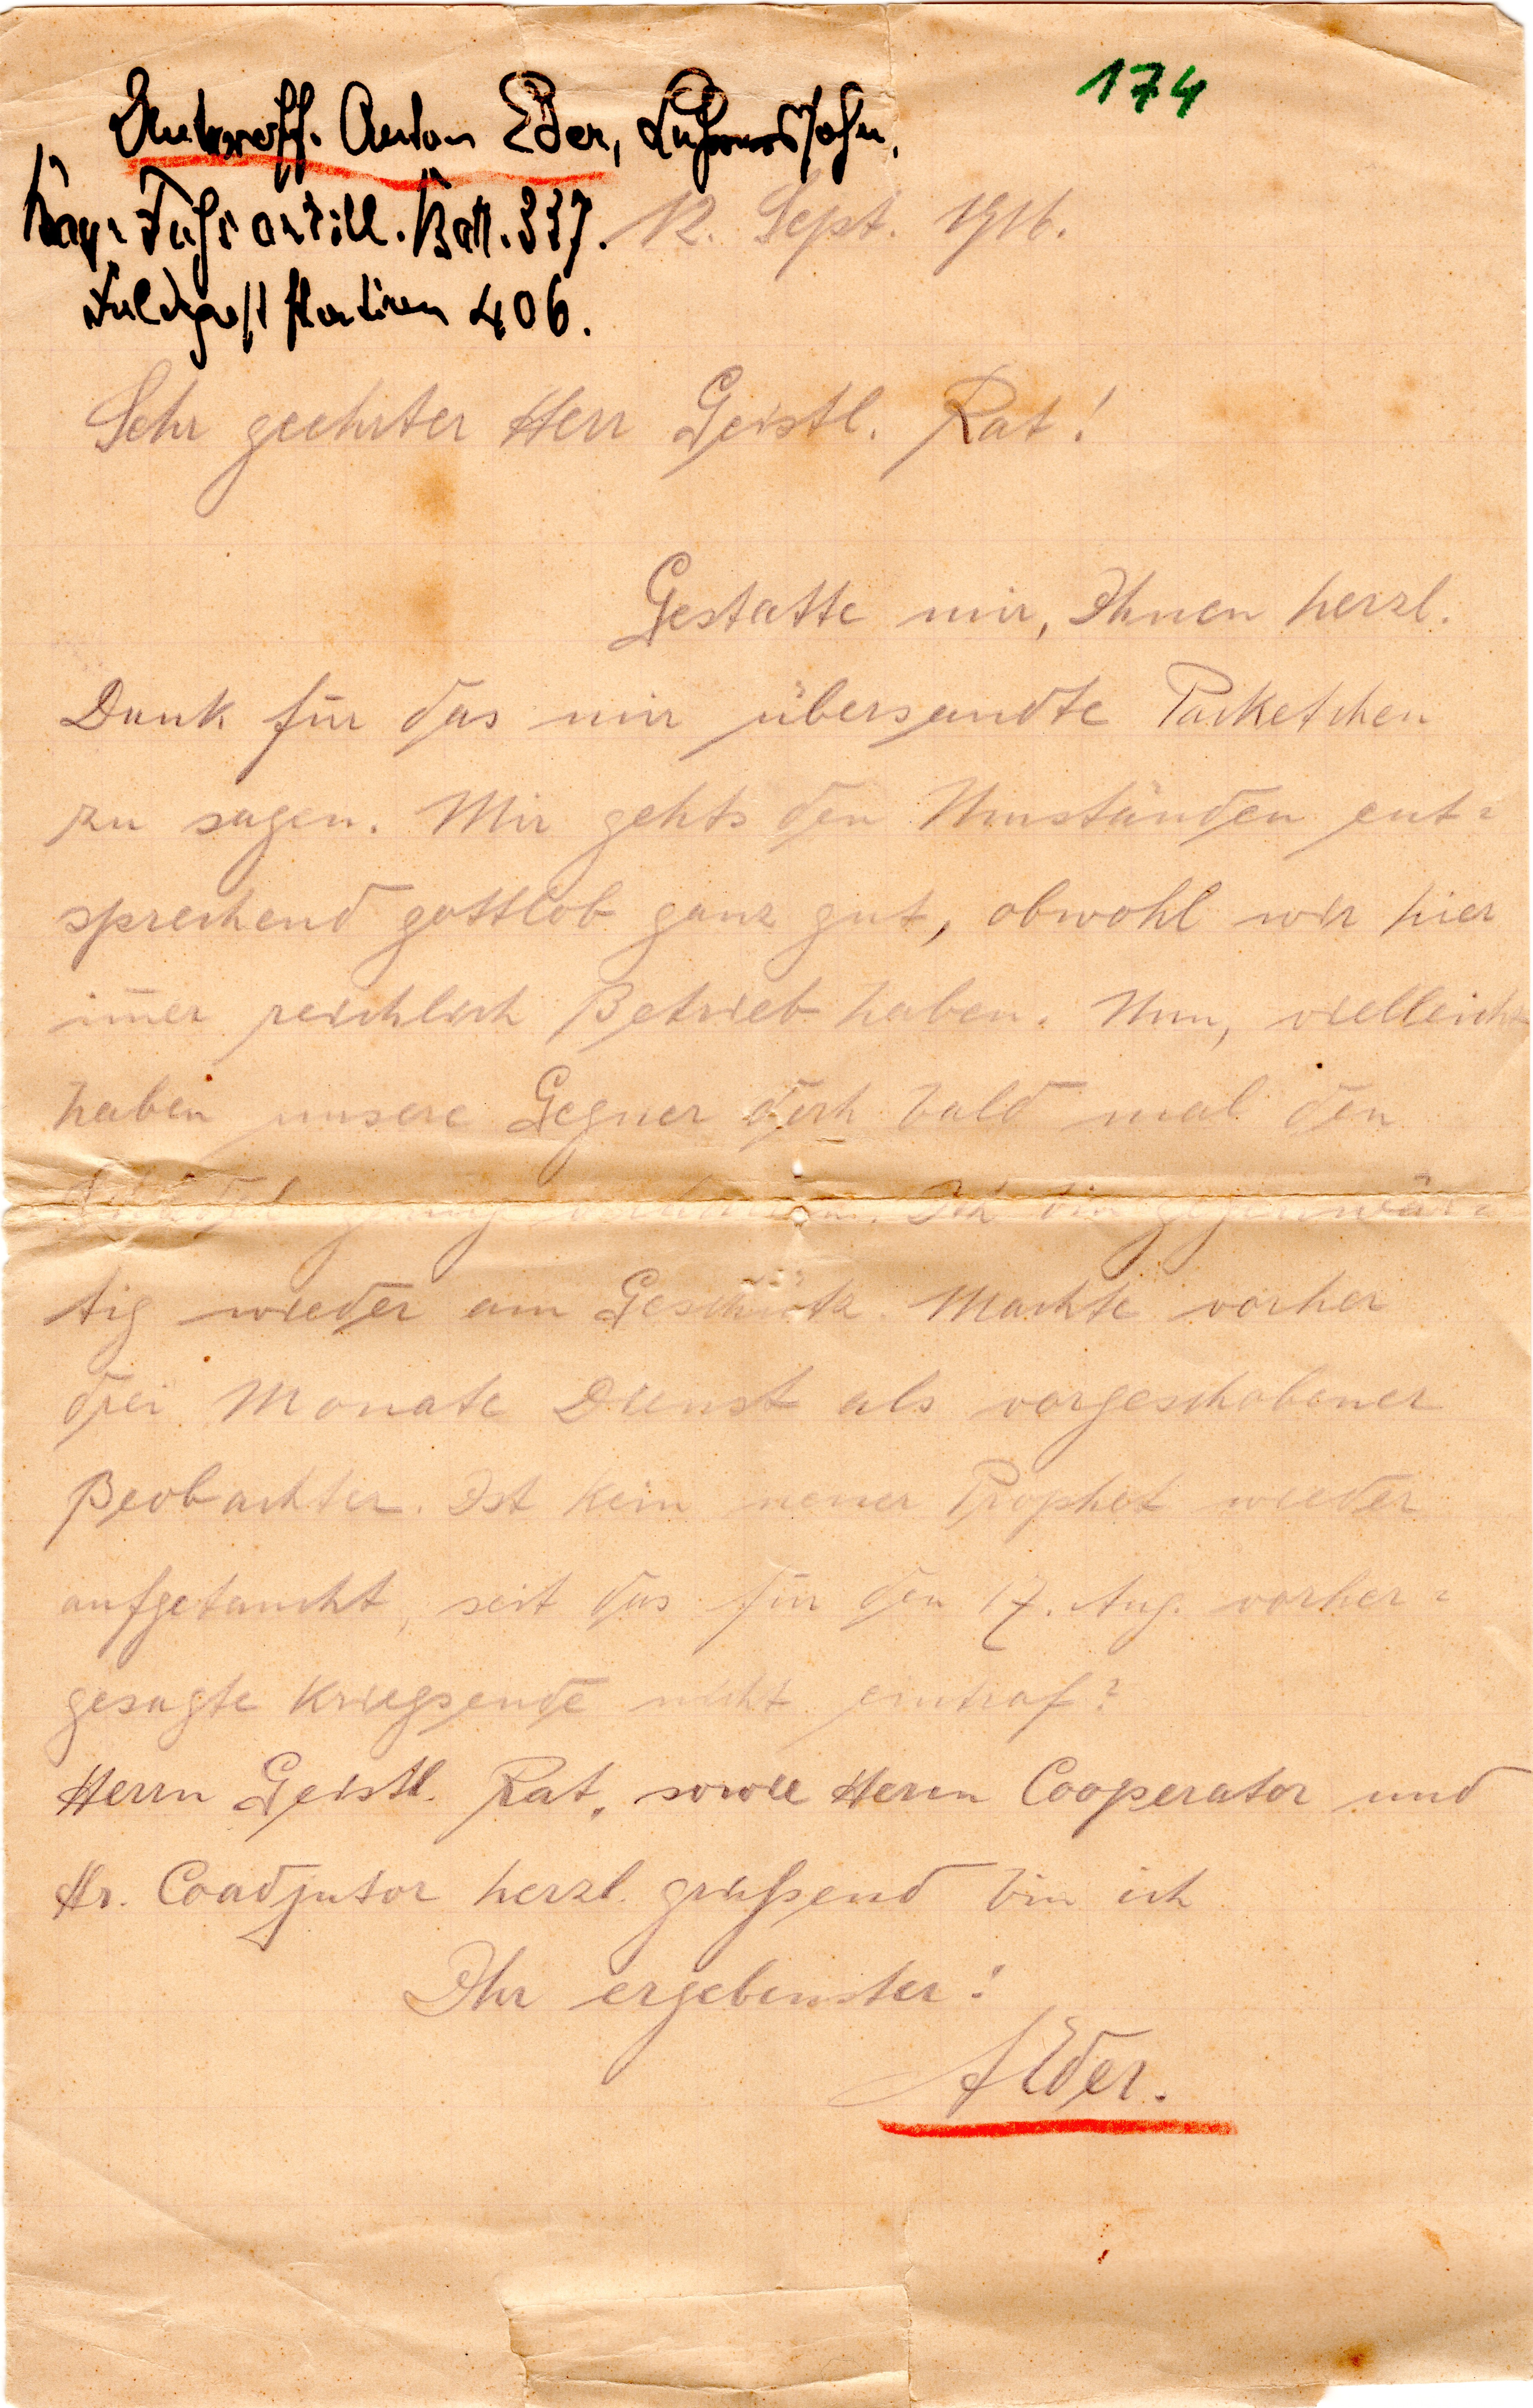 174
Unteroff. Anton Eder, Lehrerssohn,
Bayr. Fußartill. Batt. 337.
12. Sept. 1916.
Feldpoststation 406.
Sehr geehrter Herr Geistl. Rat!
Gestatte mir, Ihnen herzl.
Dank für das mir übersandte Paketchen
zu sagen. Mir gehts den Umständen ent=
sprechend gottlob ganz gut, obwohl wir hier
im̅er reichlich Betrieb haben. Nun, vielleicht
haben unsere Gegner doch bald mal den
genug. Ich bin gegenwär=
tig wieder am Geschütz. Machte vorher
drei Monate Dienst als vorgeschobener
Beobachter. Ist kein neuer Prophet wieder
aufgetaucht, seit das für den 17. Aug. vorher=
gesagte Kriegsende nicht eintraf?
Herrn Geistl. Rat, sowie Herrn Cooperator und
Hr. Coadjutor herzl. grüßend bin ich
Ihr ergebenster:
AEder.